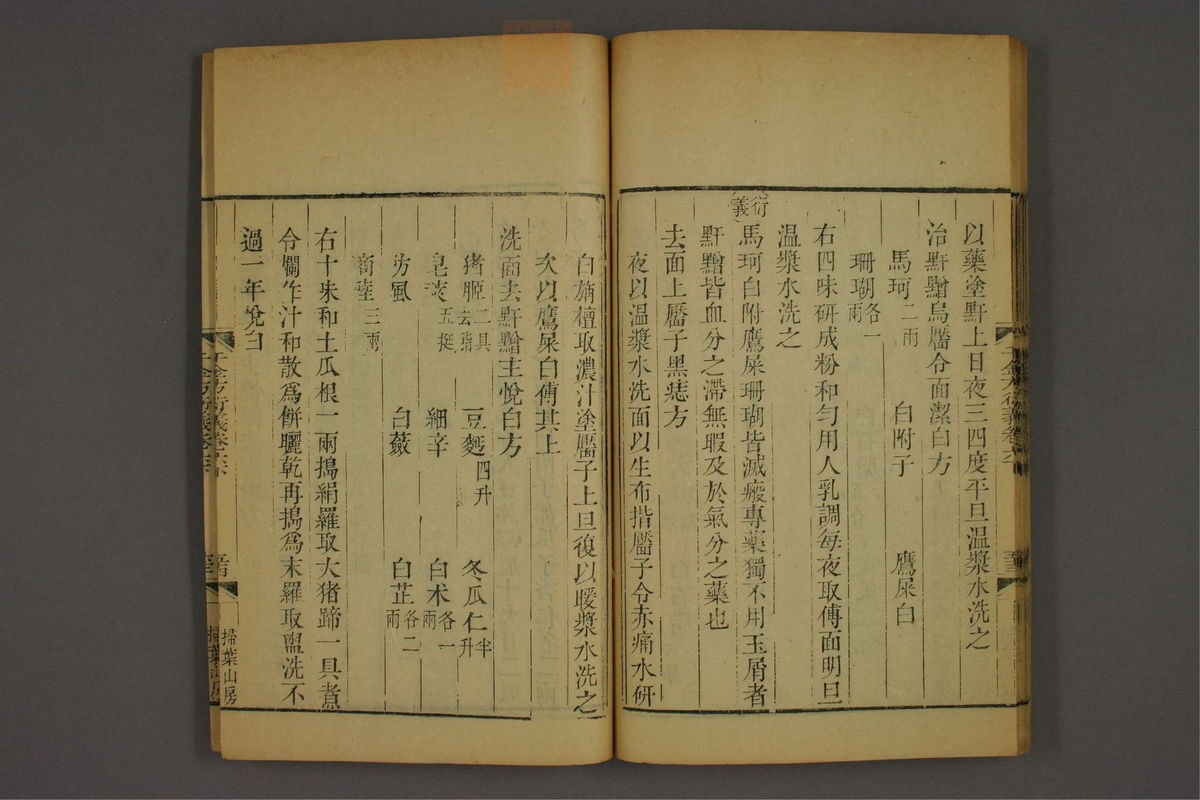 以藥塗䵟上日夜三四度平旦温漿水洗之
治䵟䵳烏靨令面潔白方
馬珂二兩　白附子　鷹屎白
珊瑚各一兩
右四味研成粉和勻用人乳調每夜取傅面明旦
温漿水洗之
衍義
馬珂白附鷹屎珊瑚皆滅瘢專藥獨不用玉屑者
䵟䵳皆血分之滯無暇及於氣分之藥也
去面上靨子黑痣方
夜以温漿水洗面以生布揩靨子令赤痛水研
白旃檀取濃汁塗靨子上旦復以暖漿水洗之
次以鷹屎白傅其上
洗面去䵟䵳主悅白方
猪胰二具去脂　豆麪四升　冬瓜仁半升
皂莢五挺　細辛　白术各一兩
防風　白蘞　白芷各二兩
商蓙三兩
右十味和土瓜根一兩搗絹羅取大猪蹄一具煮
令爛作汁和散爲餅曬乾再搗爲末羅取盥洗不
過一年悅白
千金方衍義卷六下
掃葉山房